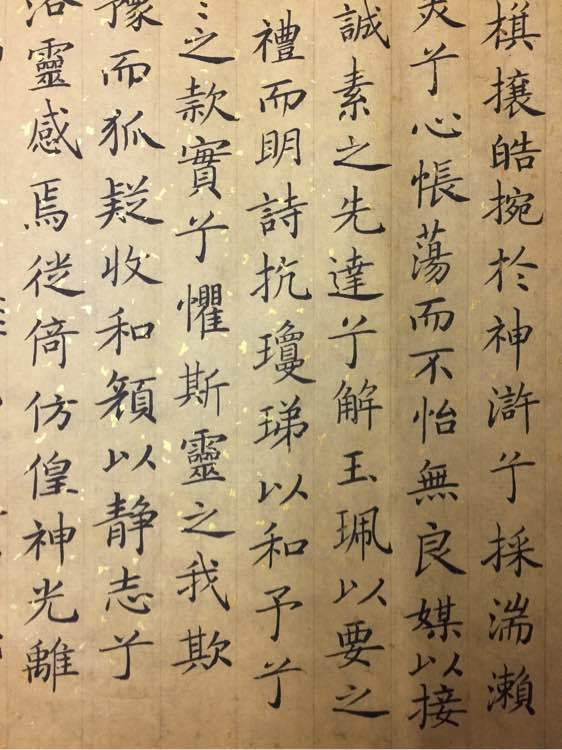 棋攘皓捥於神滸兮採湍瀨
兮心帳蕩而不怡無良媒以接
誠素之先達兮解玉珮以要之
禮而明詩抗瓊珶以和予兮
之款實兮懼斯靈之我欺
豫而狐疑收和顏以静志兮
洛靈感焉徙倚仿偟神光離